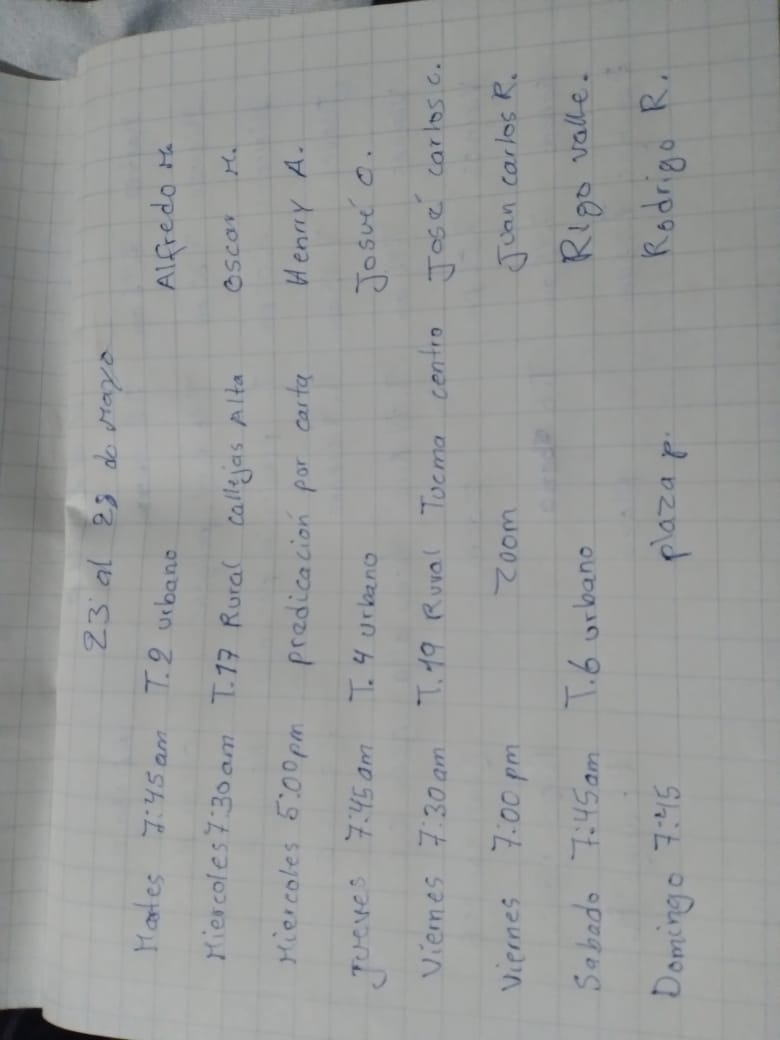 23 al 28 de Mayo
Martes 7:45am T.2 urbano Alfredo M.
Miercoles 7:30am T.17 Rural callejas Alta Oscar M.
Miercoles 5:00pm predicación por carta Henry A.
Jueves 7:45am T.4 urbano Josué O.
Viernes 7:30am T.19 Rural Tucma centro José carlos c.
Viernes 7:00pm Zoom Juan carlos R.
Sabado 7:45am T.6 urbano Rigo valle.
Domingo 7:45 plaza p. Rodrigo R.